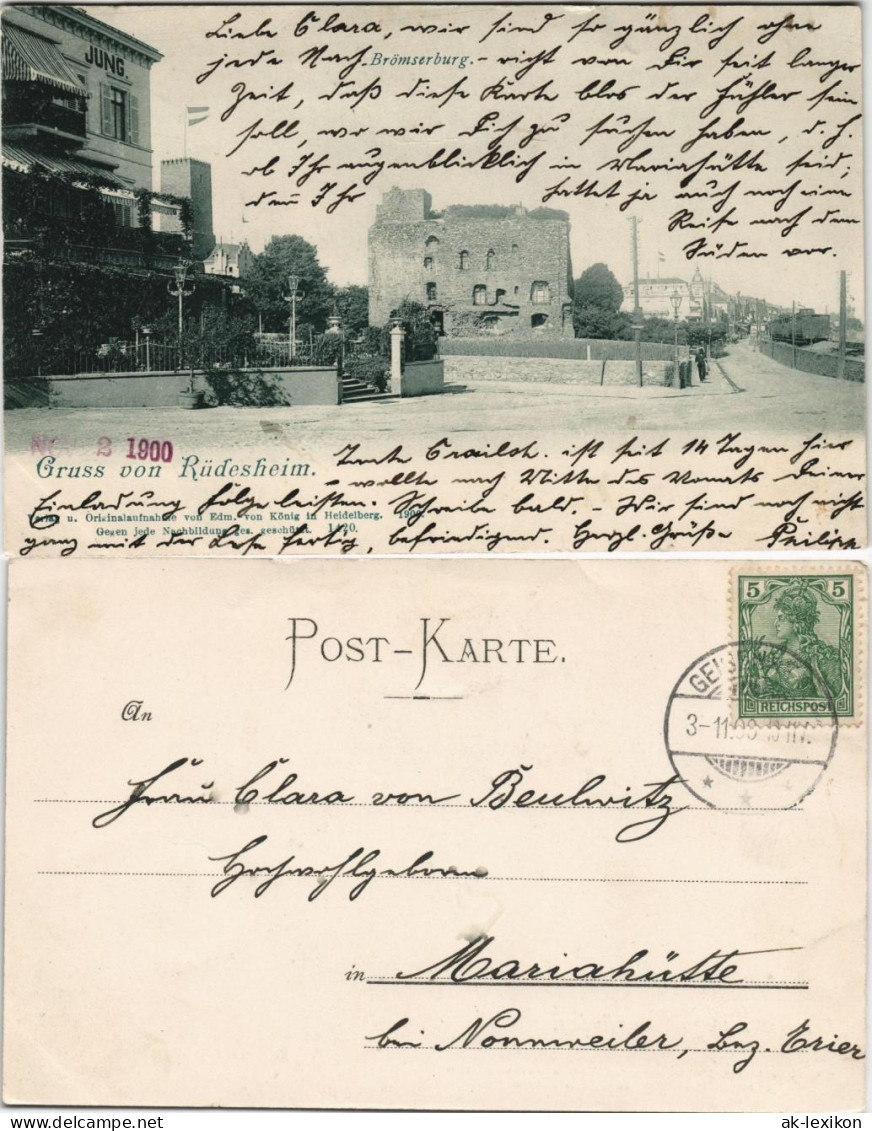 Liebe Clara, wir sind so gänzlich ohne
JUNG.
jede Nach- richt von Dir seit langer
Brömserburg.
Zeit, daß diese Karte blos der Fühler sein
soll, wo wir Dich zu suchen haben, d. h.
ob Ihr augenblicklich in Mariahütte seid;
den̄ Ihr hattet ja auch noch eine
Reise nach dem
Süden vor.
2 1900
Gruss von Rüdesheim.
Tante Crailsh. ist seit 14 Tagen hier
- wollte nach Mitte des Monats Deiner
Einladung Folge leisten. Schreibe bald. - Wir sind noch nicht
Verlag u. Originalaufnahme von Edm. von König in Heidelberg.
Gegen jede Nachbildung ges. geschützt. 1420.
ganz mit der Lese fertig, befriedigend. Herzl. Grüße Philipp
POST-KARTE.
5 5
REICHSPOST
3-11.00
An
Frau Clara von Beulwitz
Hochwohlgeboren
in Mariahütte
bei Nonnweiler, Bez. Trier
ak-lexikon